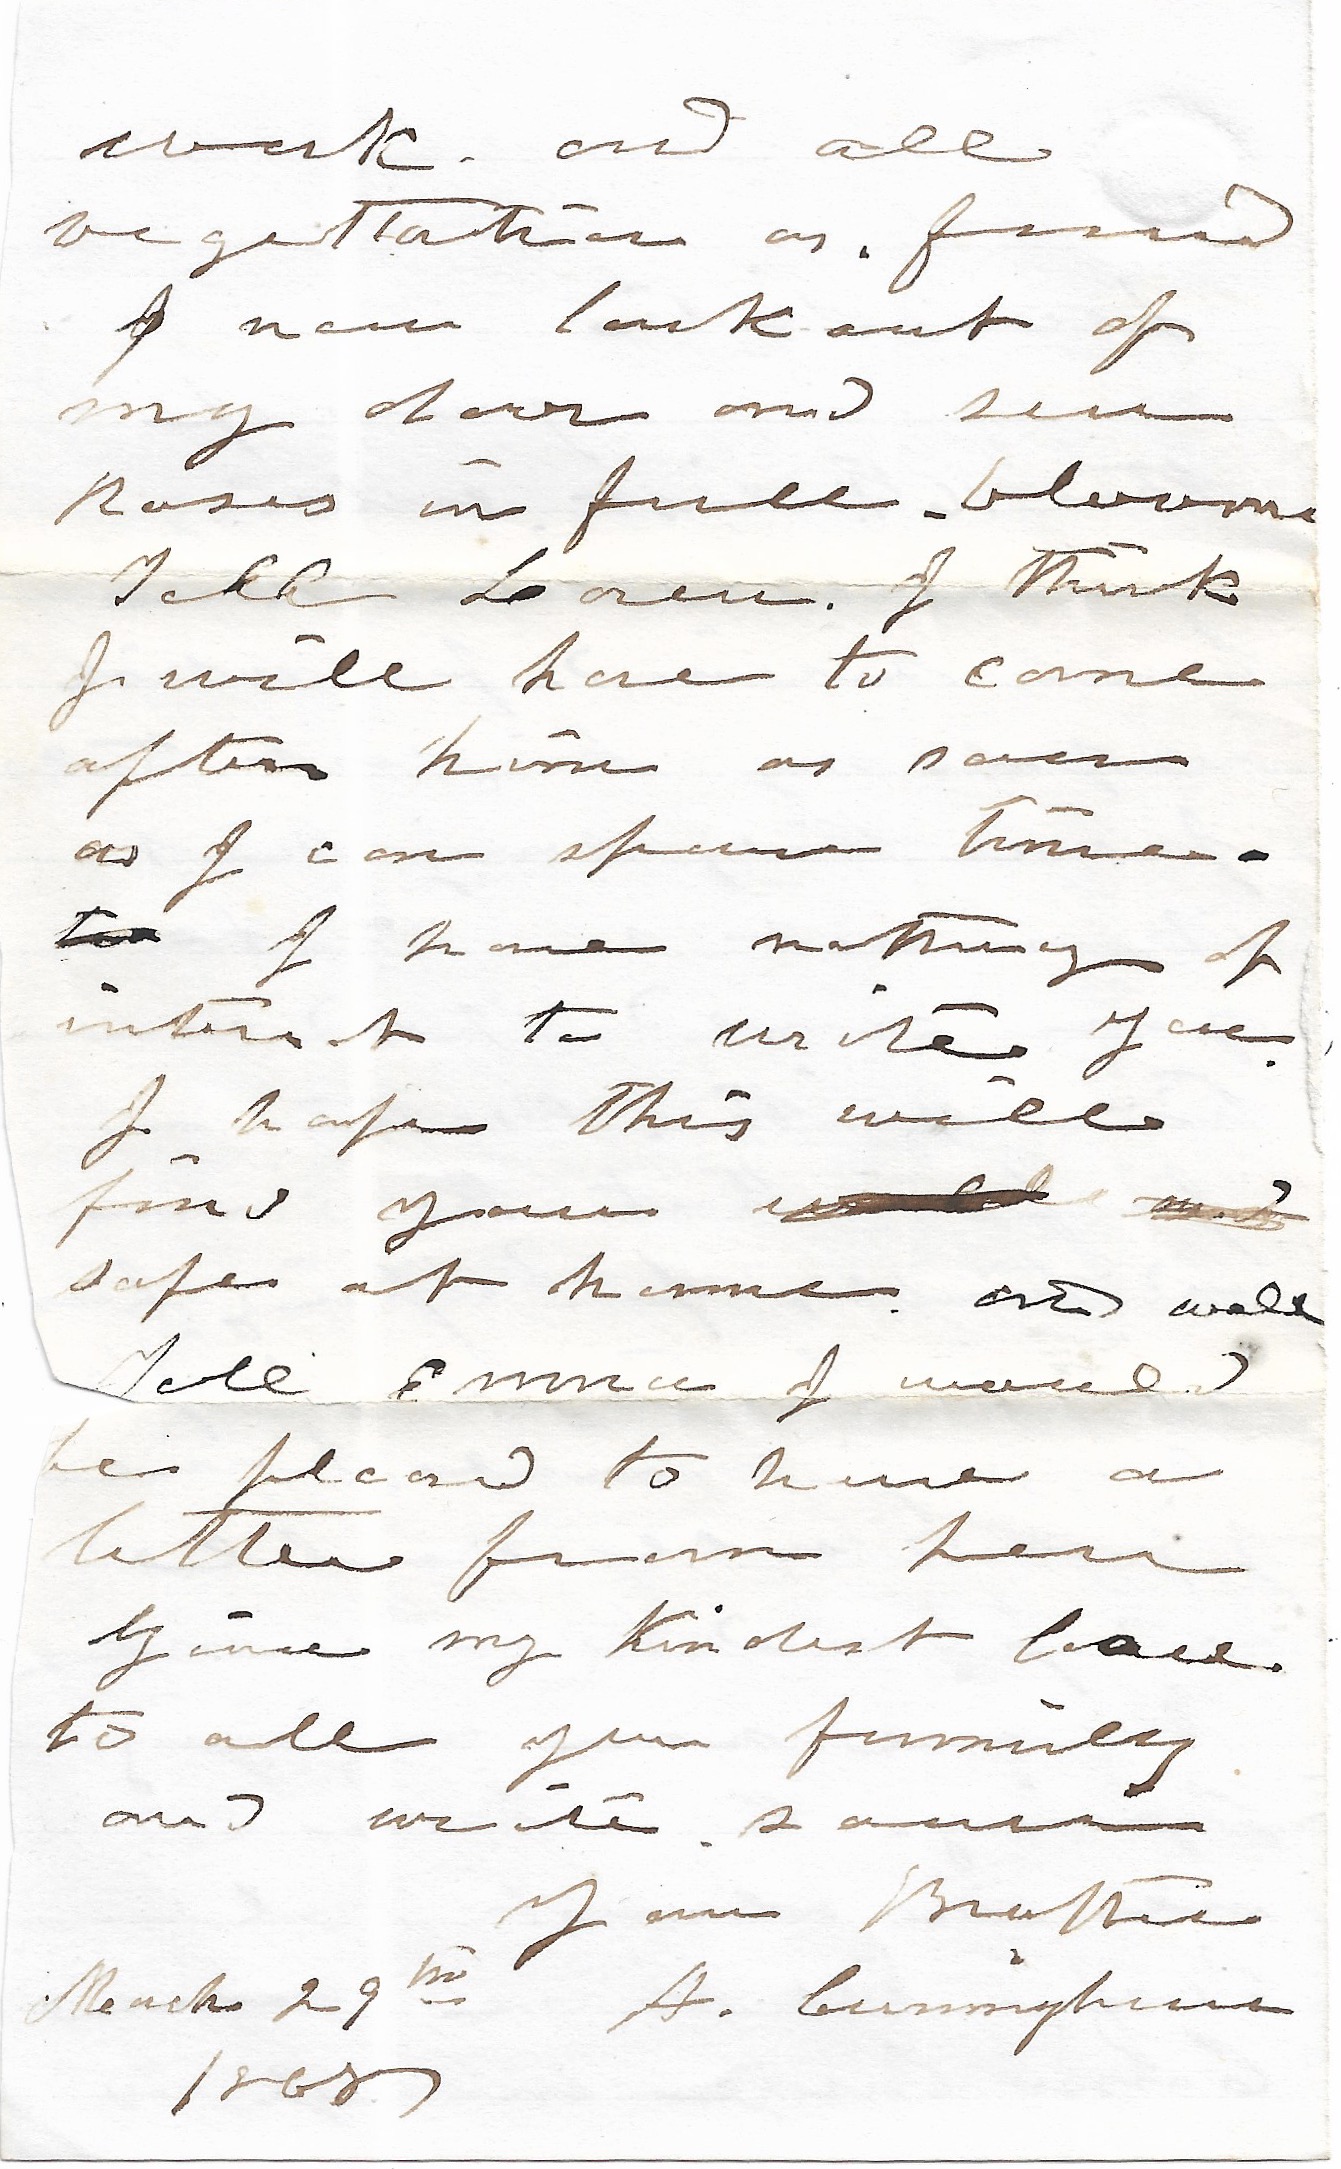 work. and all
vegettation as. found
I now look out of
my door and see
Roses in full - bloom
Tell Loren. I think
I will have to come
after him as soon
as I can spare time -
to I have nothing of
interest to write you.
I hope this will
find you well and
safe at home. and well
Tell Emma I would
be pleasd to have a
letter from her
Give my Kindest love
to all your family
and write. soon
Your Brother
March 29th A. Cunningham